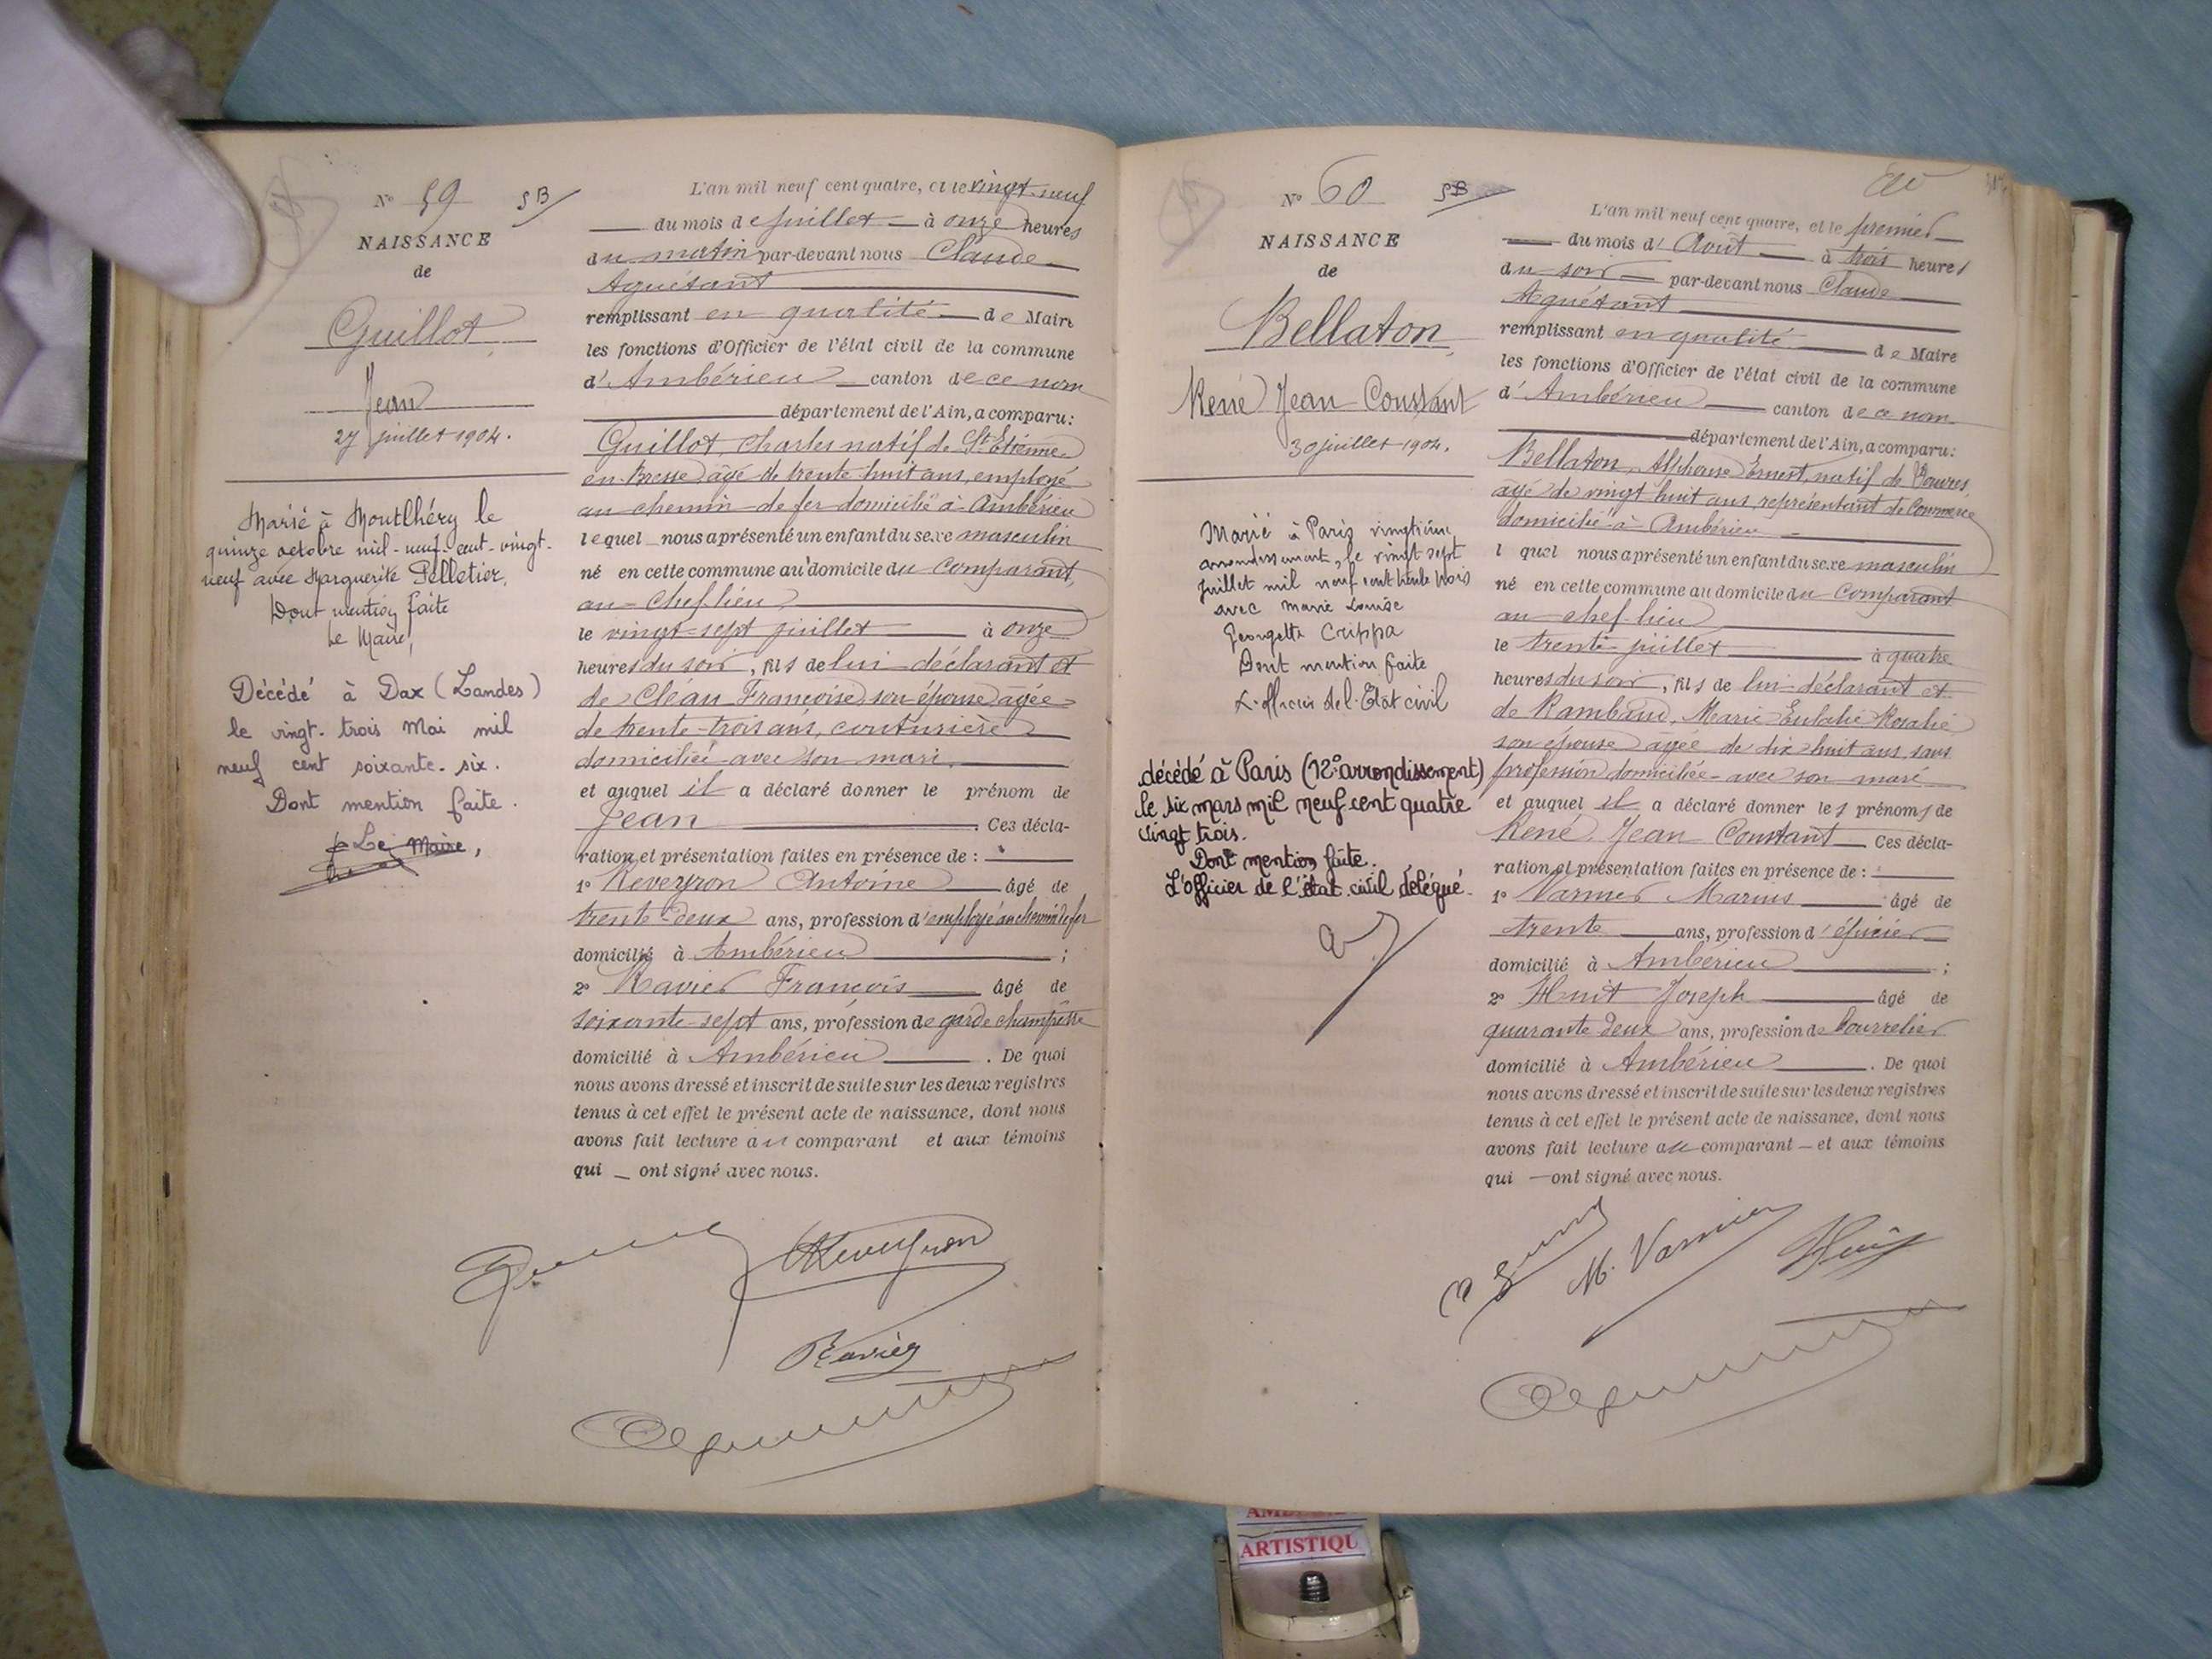 N° 59 5B
NAISSANCE
de
Guillot
Jean
27 juillet 1904.
Marié à Montlhéry le
quinze octobre mil-neuf-cent-vingt-
neuf avec Marguerite Pelletier,
Dont mention faite
Le Maire,
Décédé à Dax (Landes)
le vingt-trois Mai mil
neuf cent soixante-six.
Dont mention faite.
Le Maire,
L'an mil neuf cent quatre, et le vingt-neuf
du mois de juillet à onze heures
du matin par-devant nous Claude
Aguétant
remplissant en qualité de Maire
les fonctions d'Officier de l'état civil de la commune
d'Ambérieu canton de ce nom
département de l'Ain, a comparu:
Guillot, Charles natif de St Etienne
en Bresse âgé de trente huit ans, employé
au chemin de fer domicilié à Ambérieu
lequel nous a présenté un enfant du sexe masculin
né en cette commune au domicile du comparant,
au chef lieu
le vingt-sept juillet à onze
heures du soir, fils de lui déclarant et
de Cléau Françoise son épouse agée
de trente-trois ans, couturière
domiciliée avec son mari.
et auquel il a déclaré donner le prénom de
Jean . Ces décla-
ration et présentation faites en présence de :
1° Reveyron Antoine âgé de
trente-deux ans, profession d'employé au chemin de fer
domicilié à Ambérieu ;
2° Ravier François âgé de
soixante-sept ans, profession de garde champêtre
domicilié à Ambérieu . De quoi
nous avons dressé et inscrit de suite sur les deux registres
tenus à cet effet le présent acte de naissance, dont nous
avons fait lecture au comparant et aux témoins
qui ont signé avec nous.
Reveyron
Ravier
N° 60 5B
NAISSANCE
de
Bellaton
René Jean Constant
30 juillet 1904.
Marié à Paris vingtième
arrondissement, le vingt sept
juillet mil neuf cent trente trois
avec Marie Louise
Georgette Crippa
Dont mention faite
L'officier de l'Etat civil
décédé à Paris (12e arrondissement)
le six mars mil neuf cent quatre
vingt trois.
Dont mention faite.
L'officier de l'état civil délégué.
L'an mil neuf cent quatre, et le premier
du mois d'Août à trois heures
du soir par-devant nous Claude
Aguétant
remplissant en qualité de Maire
les fonctions d'Officier de l'état civil de la commune
d'Ambérieu canton de ce nom
département de l'Ain, a comparu:
Bellaton, Alphonse Ernest, natif de
agé de vingt huit ans, représentant de Commerce
domicilié à Ambérieu
l quel nous a présenté un enfant du sexe masculin
né en cette commune au domicile du comparant
au chef-lieu
le trente juillet à quatre
heures du soir, fils de lui déclarant et
de Rambaud, Marie Eulalie Rosalie
son épouse agée de dix huit ans, sans
profession domiciliée avec son mari
et auquel il a déclaré donner les prénoms de
René Jean Constant Ces décla-
ration et présentation faites en présence de :
1° Varnier Marius âgé de
trente ans, profession d'épicier
domicilié à Ambérieu ;
2° Huit Joseph âgé de
quarante deux ans, profession de bourrelier
domicilié à Ambérieu . De quoi
nous avons dressé et inscrit de suite sur les deux registres
tenus à cet effet le présent acte de naissance, dont nous
avons fait lecture au comparant et aux témoins
qui ont signé avec nous.
M. Varnier
Huit
ARTISTIQU